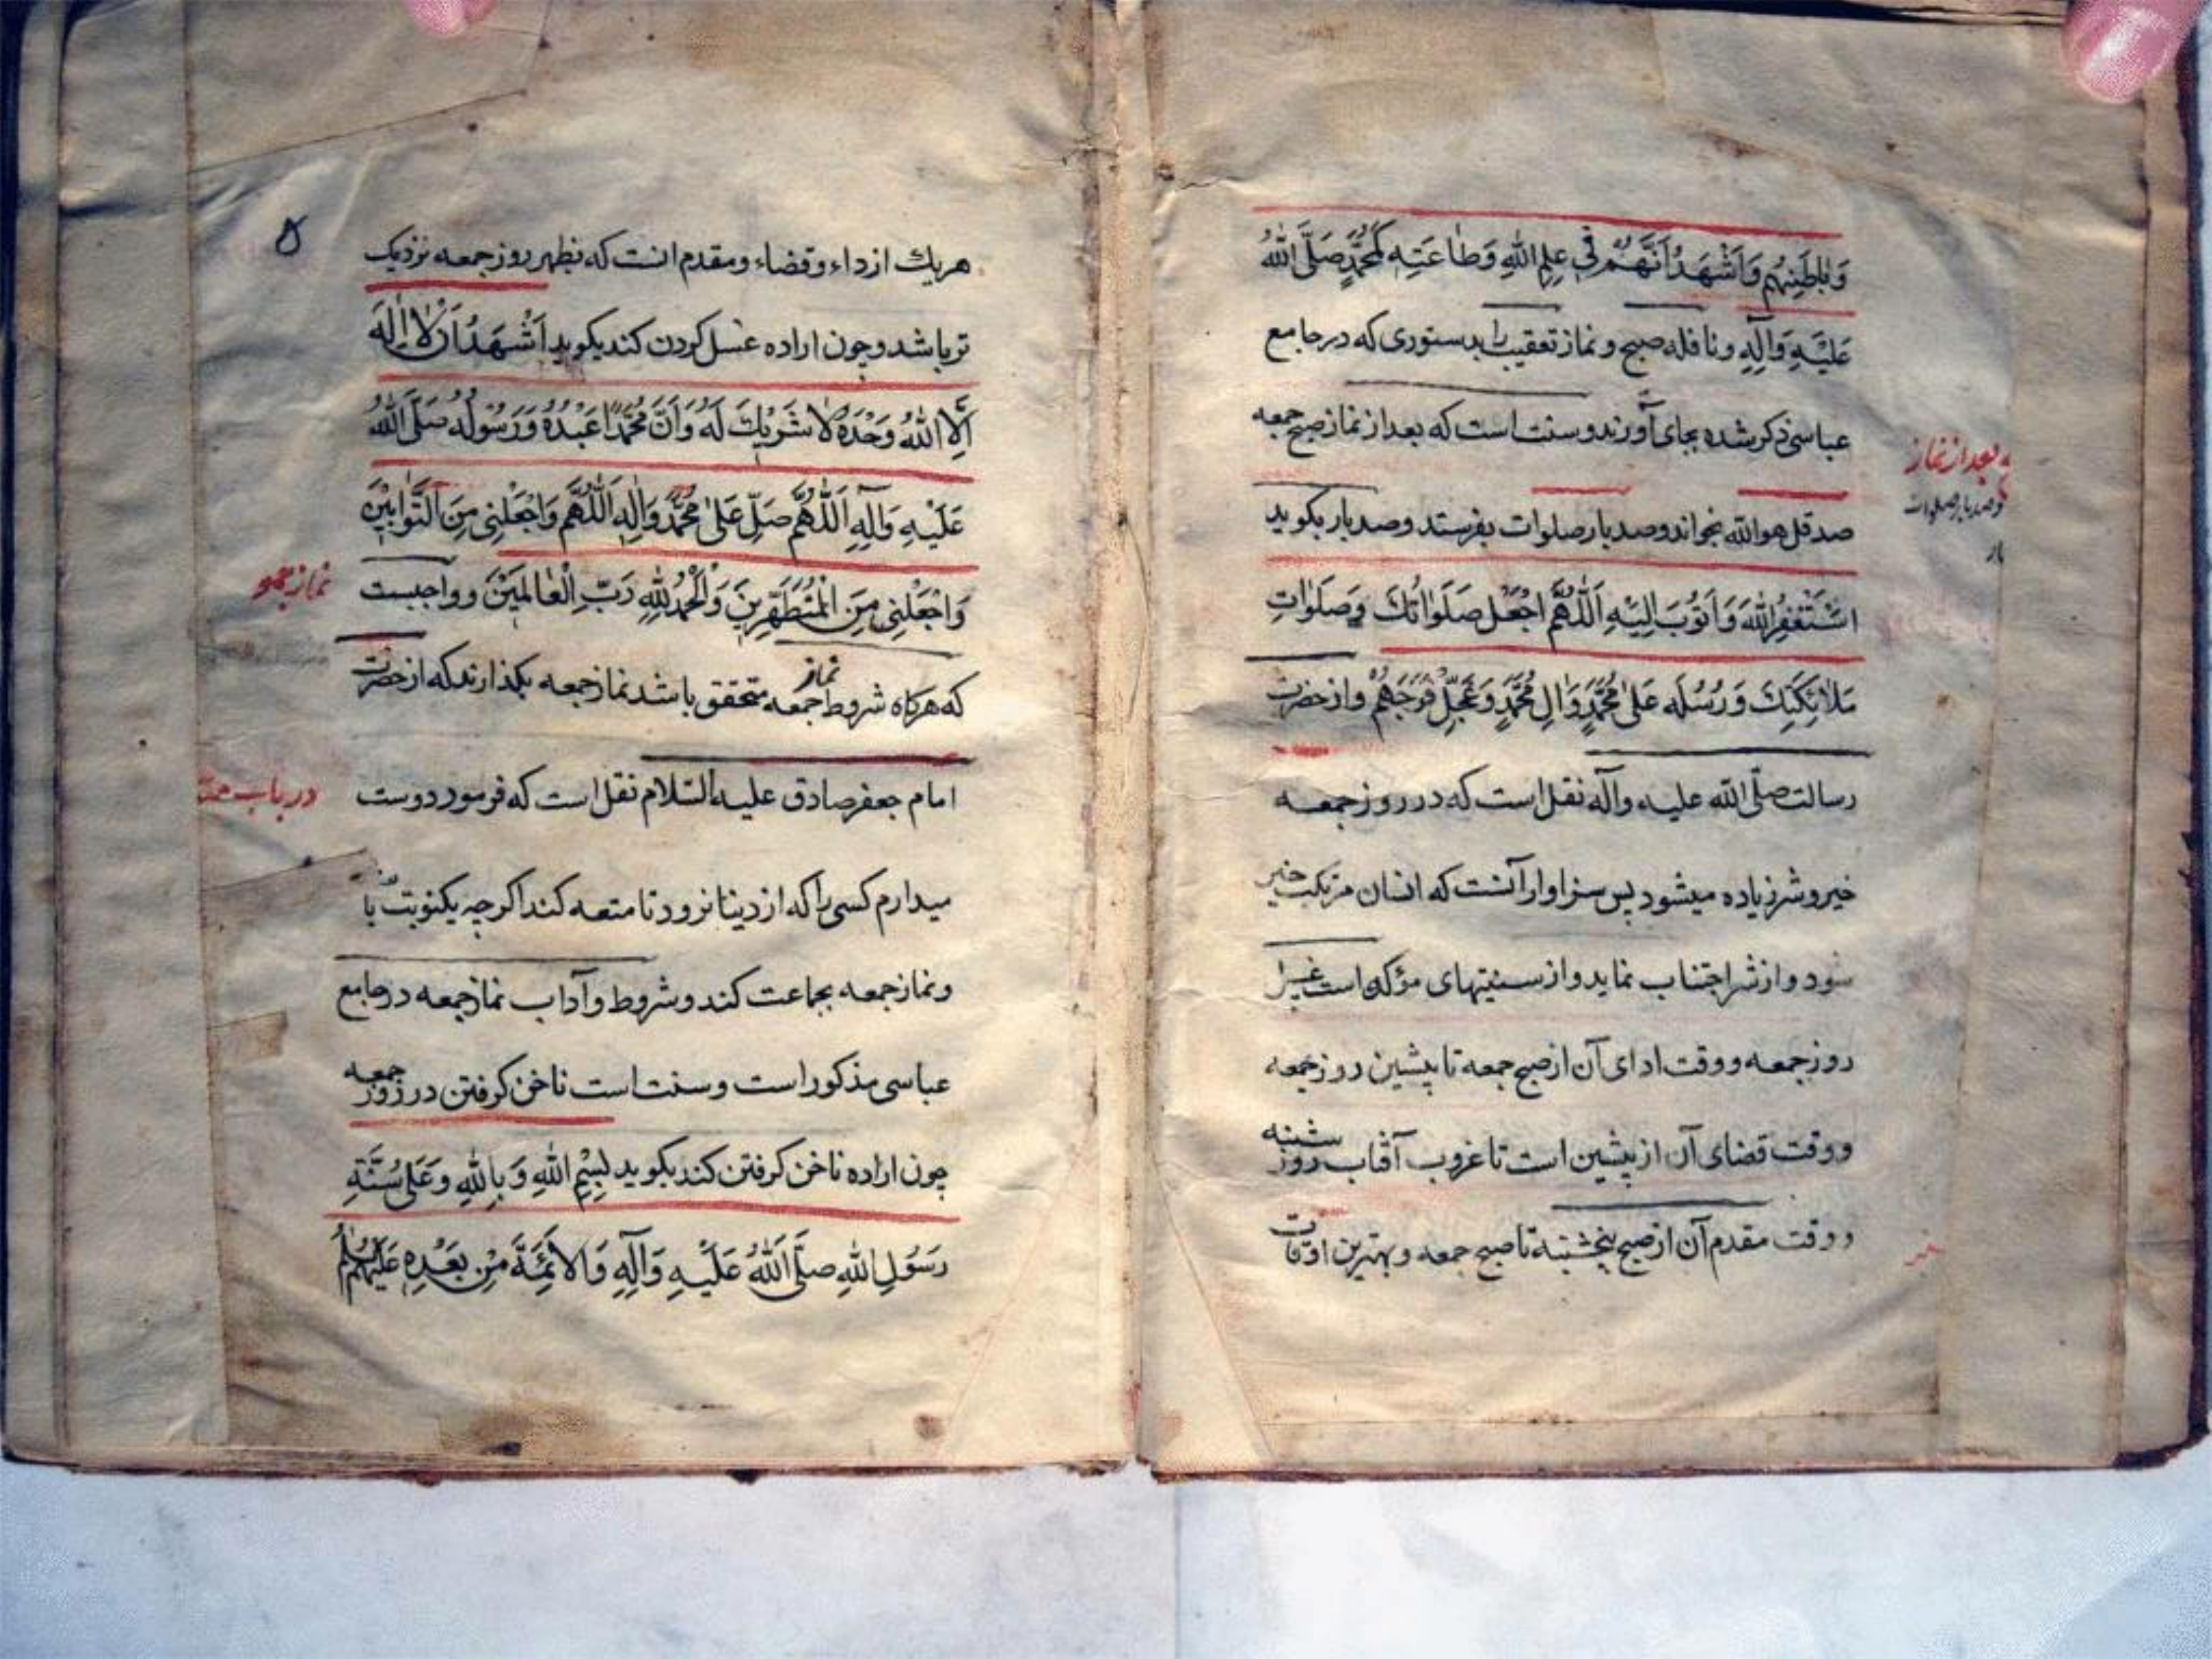 وَبٰاطِنِهِم وَاَشْهَدُ اَنَّهُمْ فِي عِلمِ اللهِ وَطٰاعَتِهِ كَمُحَمَّدٍ صَلَّى اللهُ
عَلَيْهِ وَآلِهِ ونافله صبح و نماز تعقیب را بدستوری که در جامع
عباسی ذکر شده بجای آورند و سنت است که بعد از نماز صبح جمعه
صد قل هو الله بخواند و صد بار صلوات بفرستد و صد بار بکوید
اَسْتَغْفِرُ اللهَ وَاَتُوبُ اِلَيْهِ اَللّٰهُمَّ اجْعَل صَلَوٰاتُكَ وَصَلَوٰاتِ
مَلٰائِكَتِكَ وَرُسُلِهِ عَلىٰ مُحَمَّدٍ وَآلِ مُحَمَّدٍ وَعَجِّلْ فَرَجَهُمْ و از حضرت
رسالت صلّى الله عليه وآله نقل است که در روز جمعه
خیر و شر زیاده میشود پس سزاوار آنست که انسان مرتکب خیر
شود و از شر اجتناب نماید و از سنتیهای مؤکده است غسل
روز جمعه و وقت ادای آن از صبح جمعه تا پیشین روز جمعه
و وقت قضای آن از پیشین است تا غروب آفتاب روز شنبه
و وقت مقدم آن از صبح پنجشنبه تا صبح جمعه و بهترین اوقات
بعد از نماز
و صد بار صلوات
بار
۵
هریك از اداء و قضاء و مقدم انست که بظهر روز جمعه نزدیک
تر باشد و چون اراده غسل کردن کند بکوید اَشْهَدُ اَنْ لٰا اِلٰهَ
اِلَّا اللهُ وَحْدَهُ لٰا شَرِيْكَ لَهُ وَاَنَّ مُحَمَّدًا عَبْدُهُ وَرَسُولُهُ صَلَّى اللهُ
عَلَيْهِ وَآلِهِ اَللّٰهُمَّ صَلِّ عَلىٰ مُحَمَّدٍ وَآلِهِ اَللّٰهُمَّ وَاجْعَلْنِي مِنَ التَّوّٰابِيْنَ
وَاجْعَلْنِي مِنَ الْمُتَطَهِّرِينَ وَالْحَمْدُ لِلّٰهِ رَبِّ الْعٰالَمِيْنَ و واجبست
که هرکاه شروط نماز جمعه متحقق باشد نماز جمعه بکذارند که از حضرت
امام جعفر صادق علیه السّلام نقل است که فرمود دوست
میدارم کسی را که از دینا نرود تا متعه کند اکر چه یکنوبت باشد
و نماز جمعه بجماعت کند و شروط و آداب نماز جمعه در جامع
عباسی مذکور است و سنت است ناخن کرفتن در روز جمعه
چون اراده ناخن کرفتن کند بکوید بِسْمِ اللهِ وَبِاللهِ وَعَلىٰ سُنَّةِ
رَسُولِ اللهِ صَلَّى اللهُ عَلَيْهِ وَآلِهِ وَالاَئِمَّةِ مِنْ بَعْدِهِ عَلَيْهِمُ
نماز جمعه
در باب